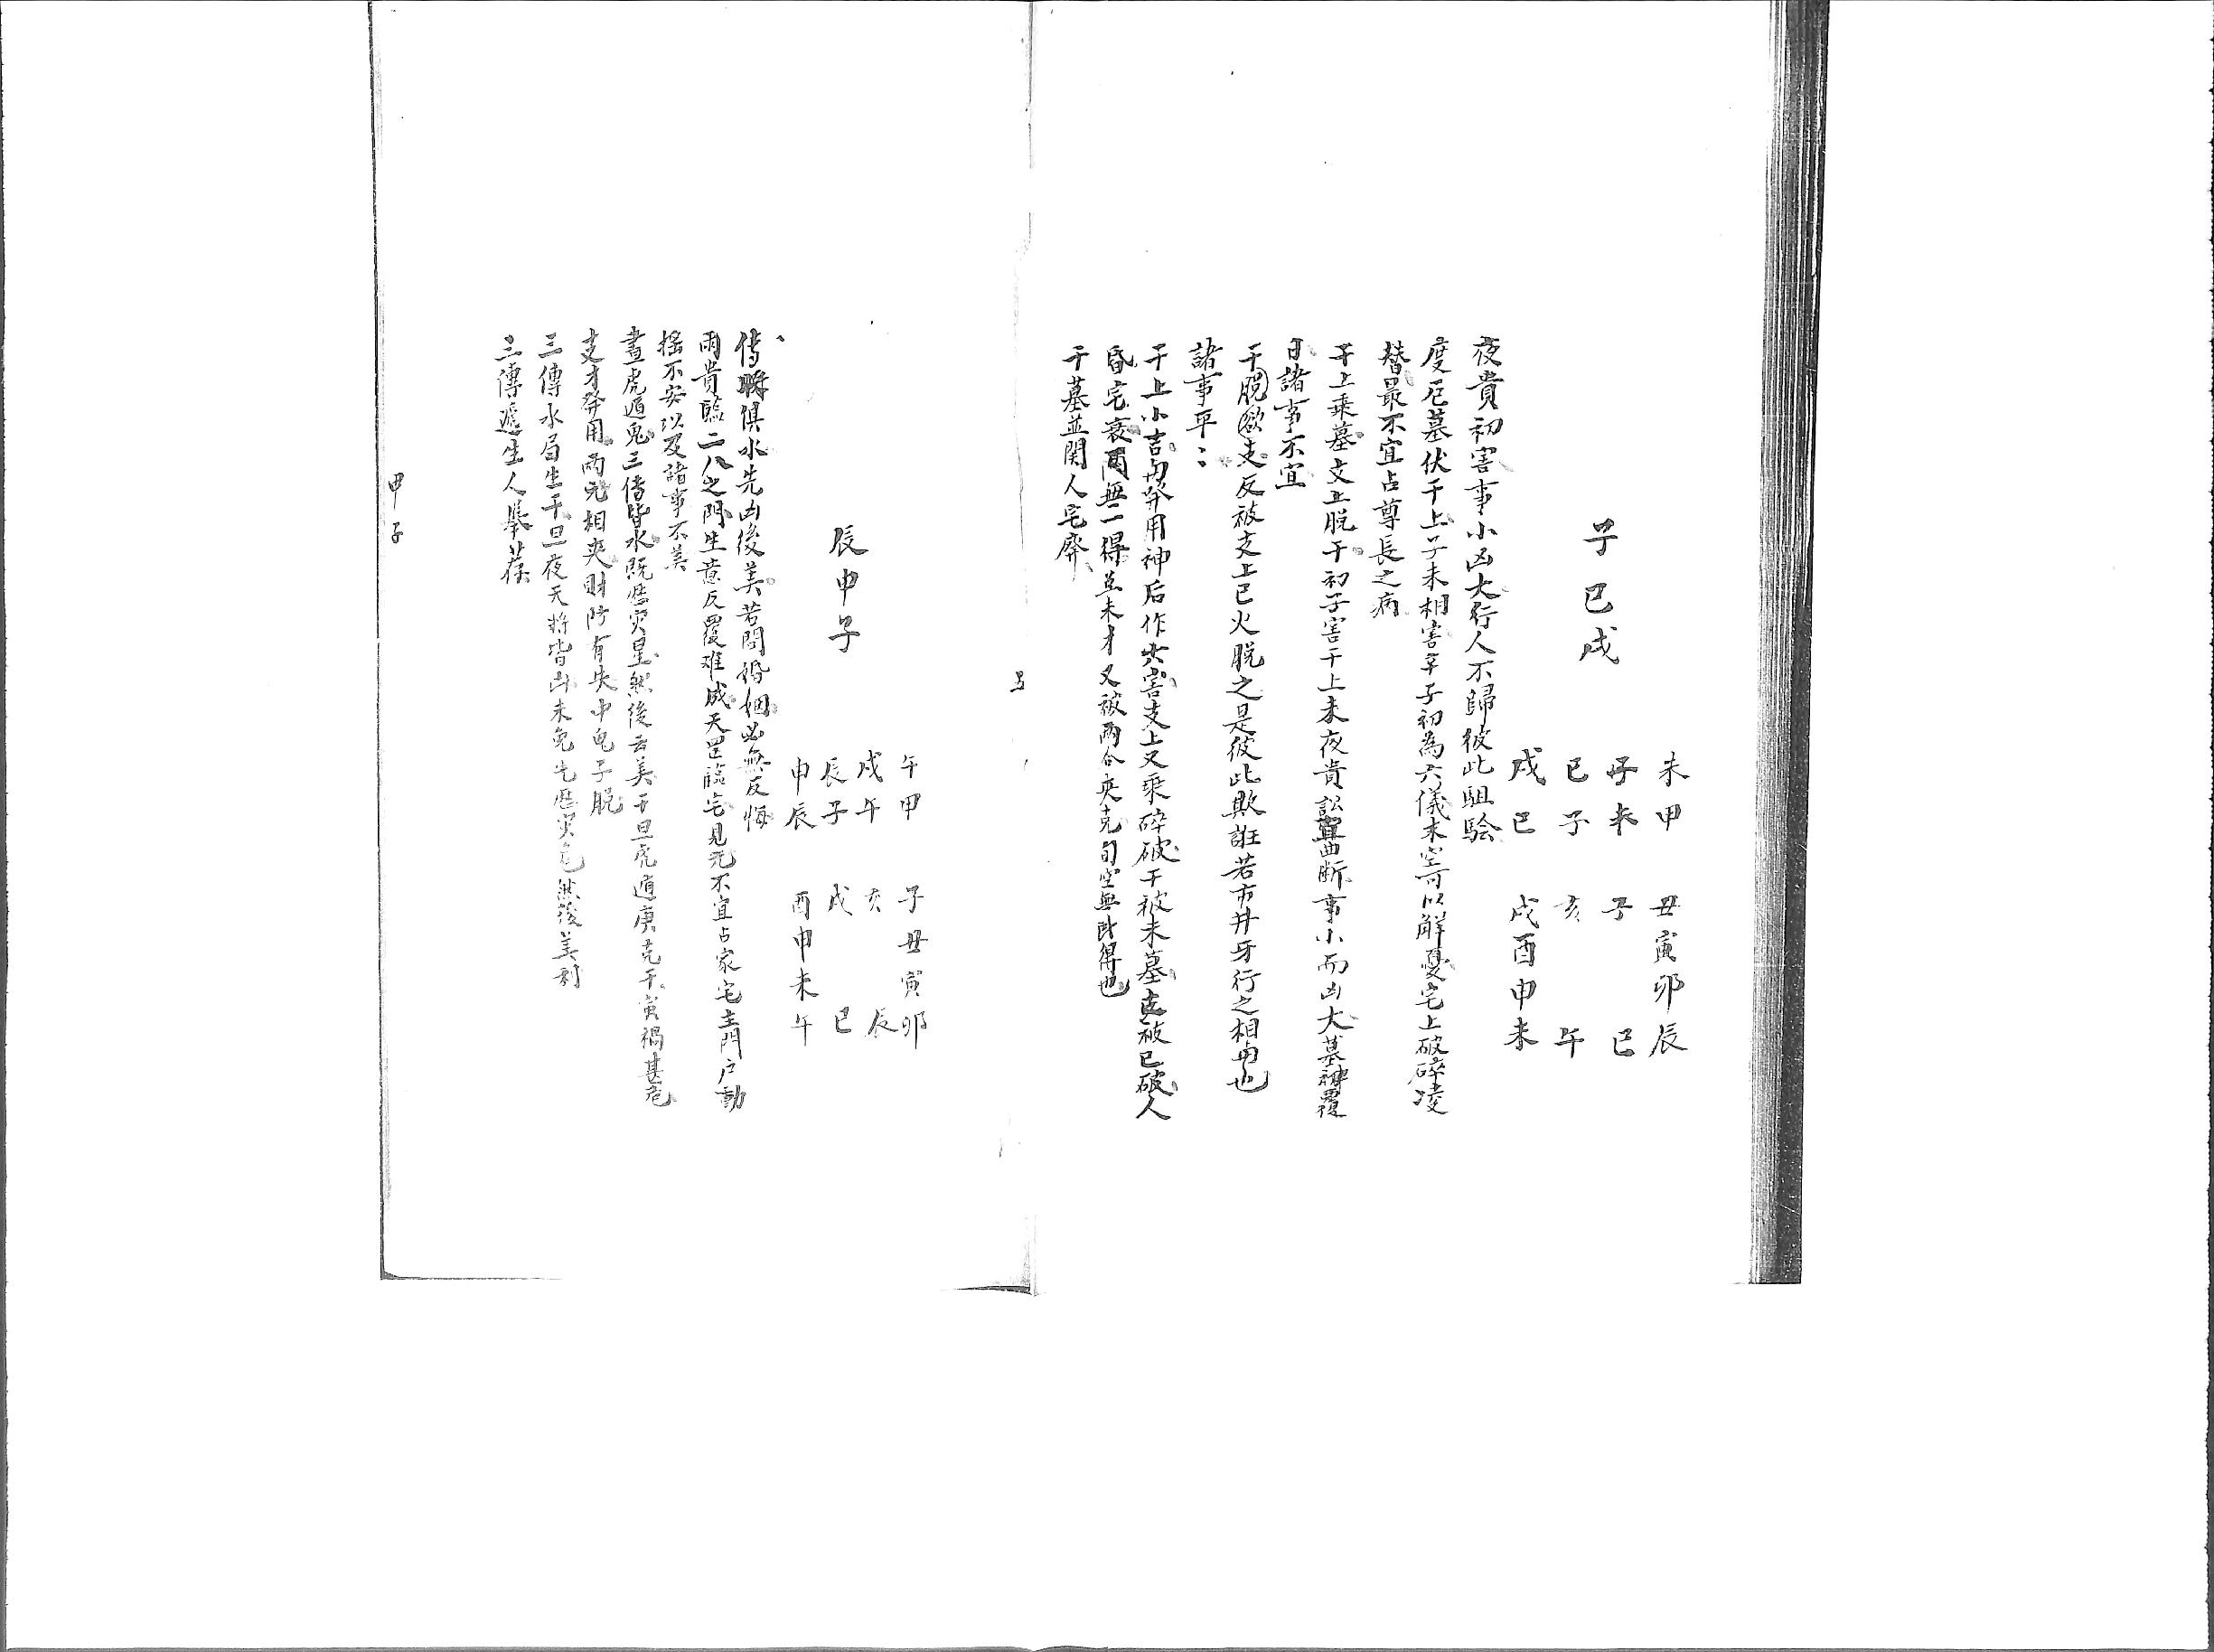 未甲　丑寅卯辰
子未　子　巳
巳子　亥　午
戌巳　戌酉申未
子巳戌
夜貴初害事小凶大行人不歸彼此駔騐
度厄墓伏干上子未相害幸子初為六儀末空可以解憂宅上破碎凌
替最不宜占尊長之病
干上乘墓支上脱干初子害干上未夜貴訟宜曲断事小而凶大墓神覆
日諸事不宜
干脱欲支反被支上巳火脱之是彼此欺誑若市井牙行之相与也
諸事平〻
干上小吉与發用神后作六害支上又乘碎破干被未墓支被巳破人
昏宅衰两無一得且未才又被两合夾克旬空無財得也
干墓並関人宅廢
五
午甲　子丑寅卯
戌午　亥　辰
辰子　戌　巳
申辰　酉申未午
辰申子
傳將俱水先凶後美若問婚姻必無反悔
兩貴臨二八之門生意反覆难成天罡臨宅見元不宜占家宅主門户動
摇不安以及諸事不美
晝虎遁鬼三傳皆水既歷灾星然後云美干旦虎遁庚克干寅禍甚危
支才發用两元相夾財防有失中黾子脱
三傳水局生干旦夜天將皆凶未免先歷灾危然後美利
三傳遞生人舉荐
甲子